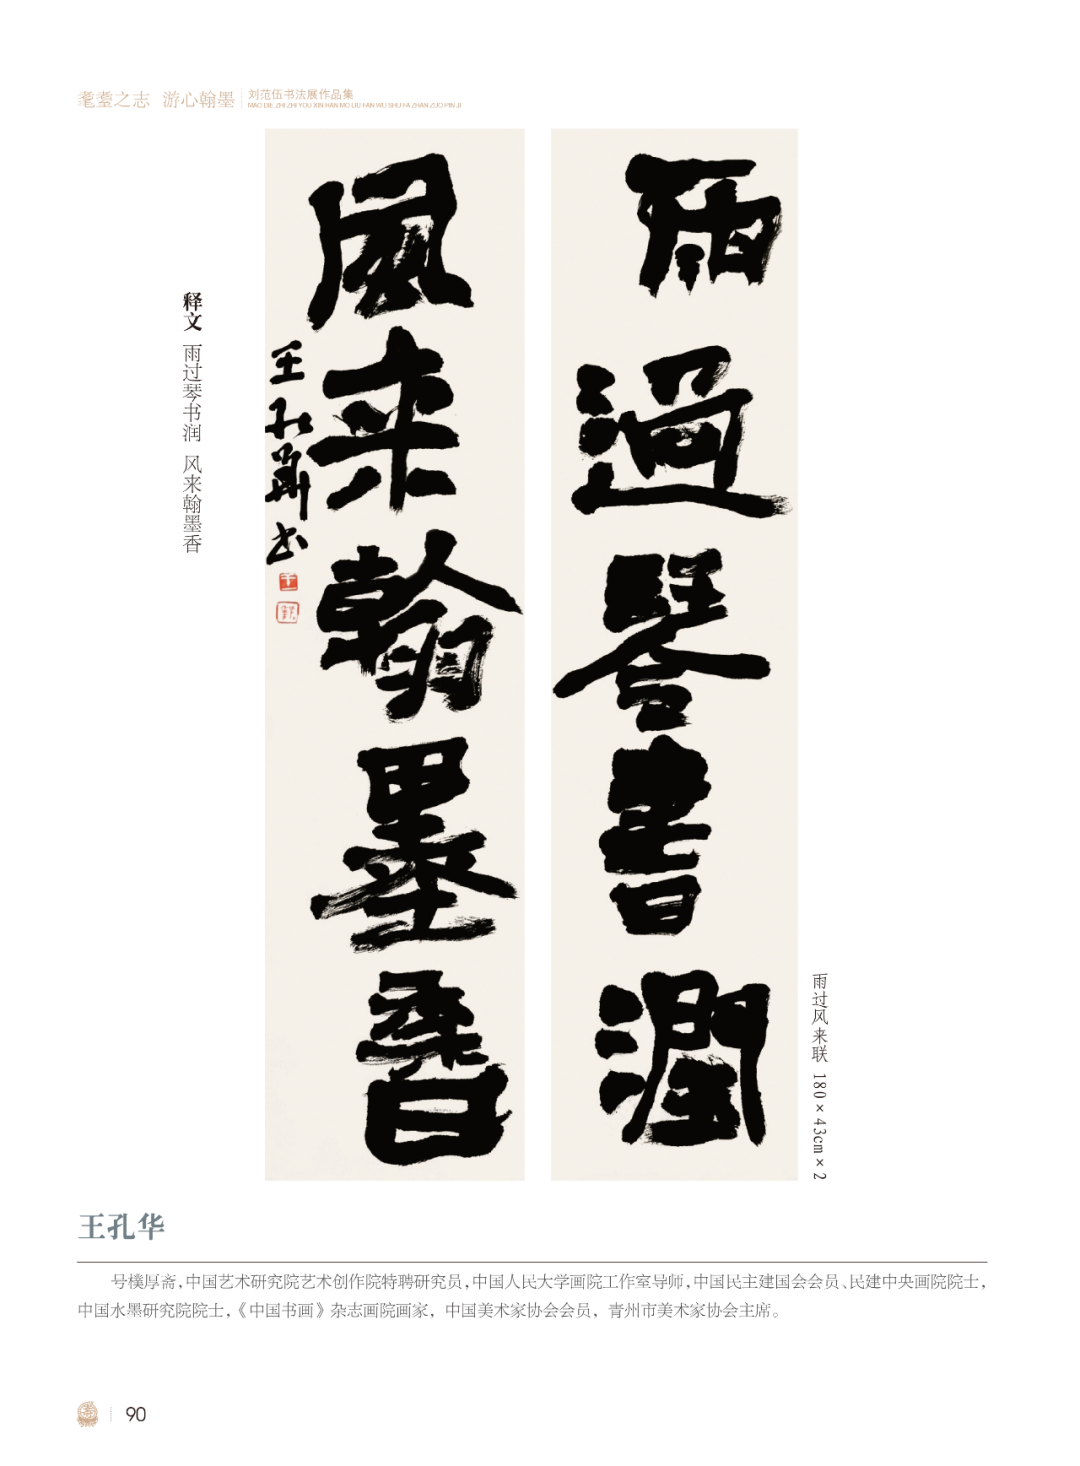 耄耋之志 游心翰墨
刘范伍书法展作品集
MAO DIE ZHI ZHI YOU XIN HAN MO LIU FAN WU SHU FA ZHAN ZUO PIN JI
雨過琴書潤
風来翰墨香
王孔華书
释文 雨过琴书润 风来翰墨香
雨过风来联 180×43cm×2
王孔华
号樸厚斋,中国艺术研究院艺术创作院特聘研究员,中国人民大学画院工作室导师,中国民主建国会会员、民建中央画院院士,
中国水墨研究院院士,《中国书画》杂志画院画家,中国美术家协会会员,青州市美术家协会主席。
90